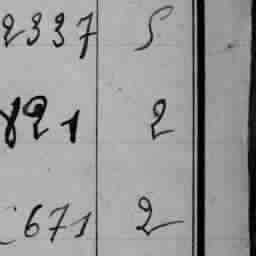 2337 5
821 2
671 2